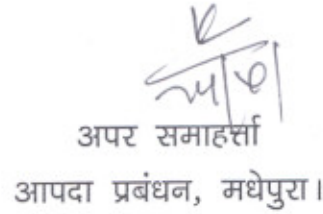 अपर समाहर्त्ता
आपदा प्रबंधन, मधेपुरा।